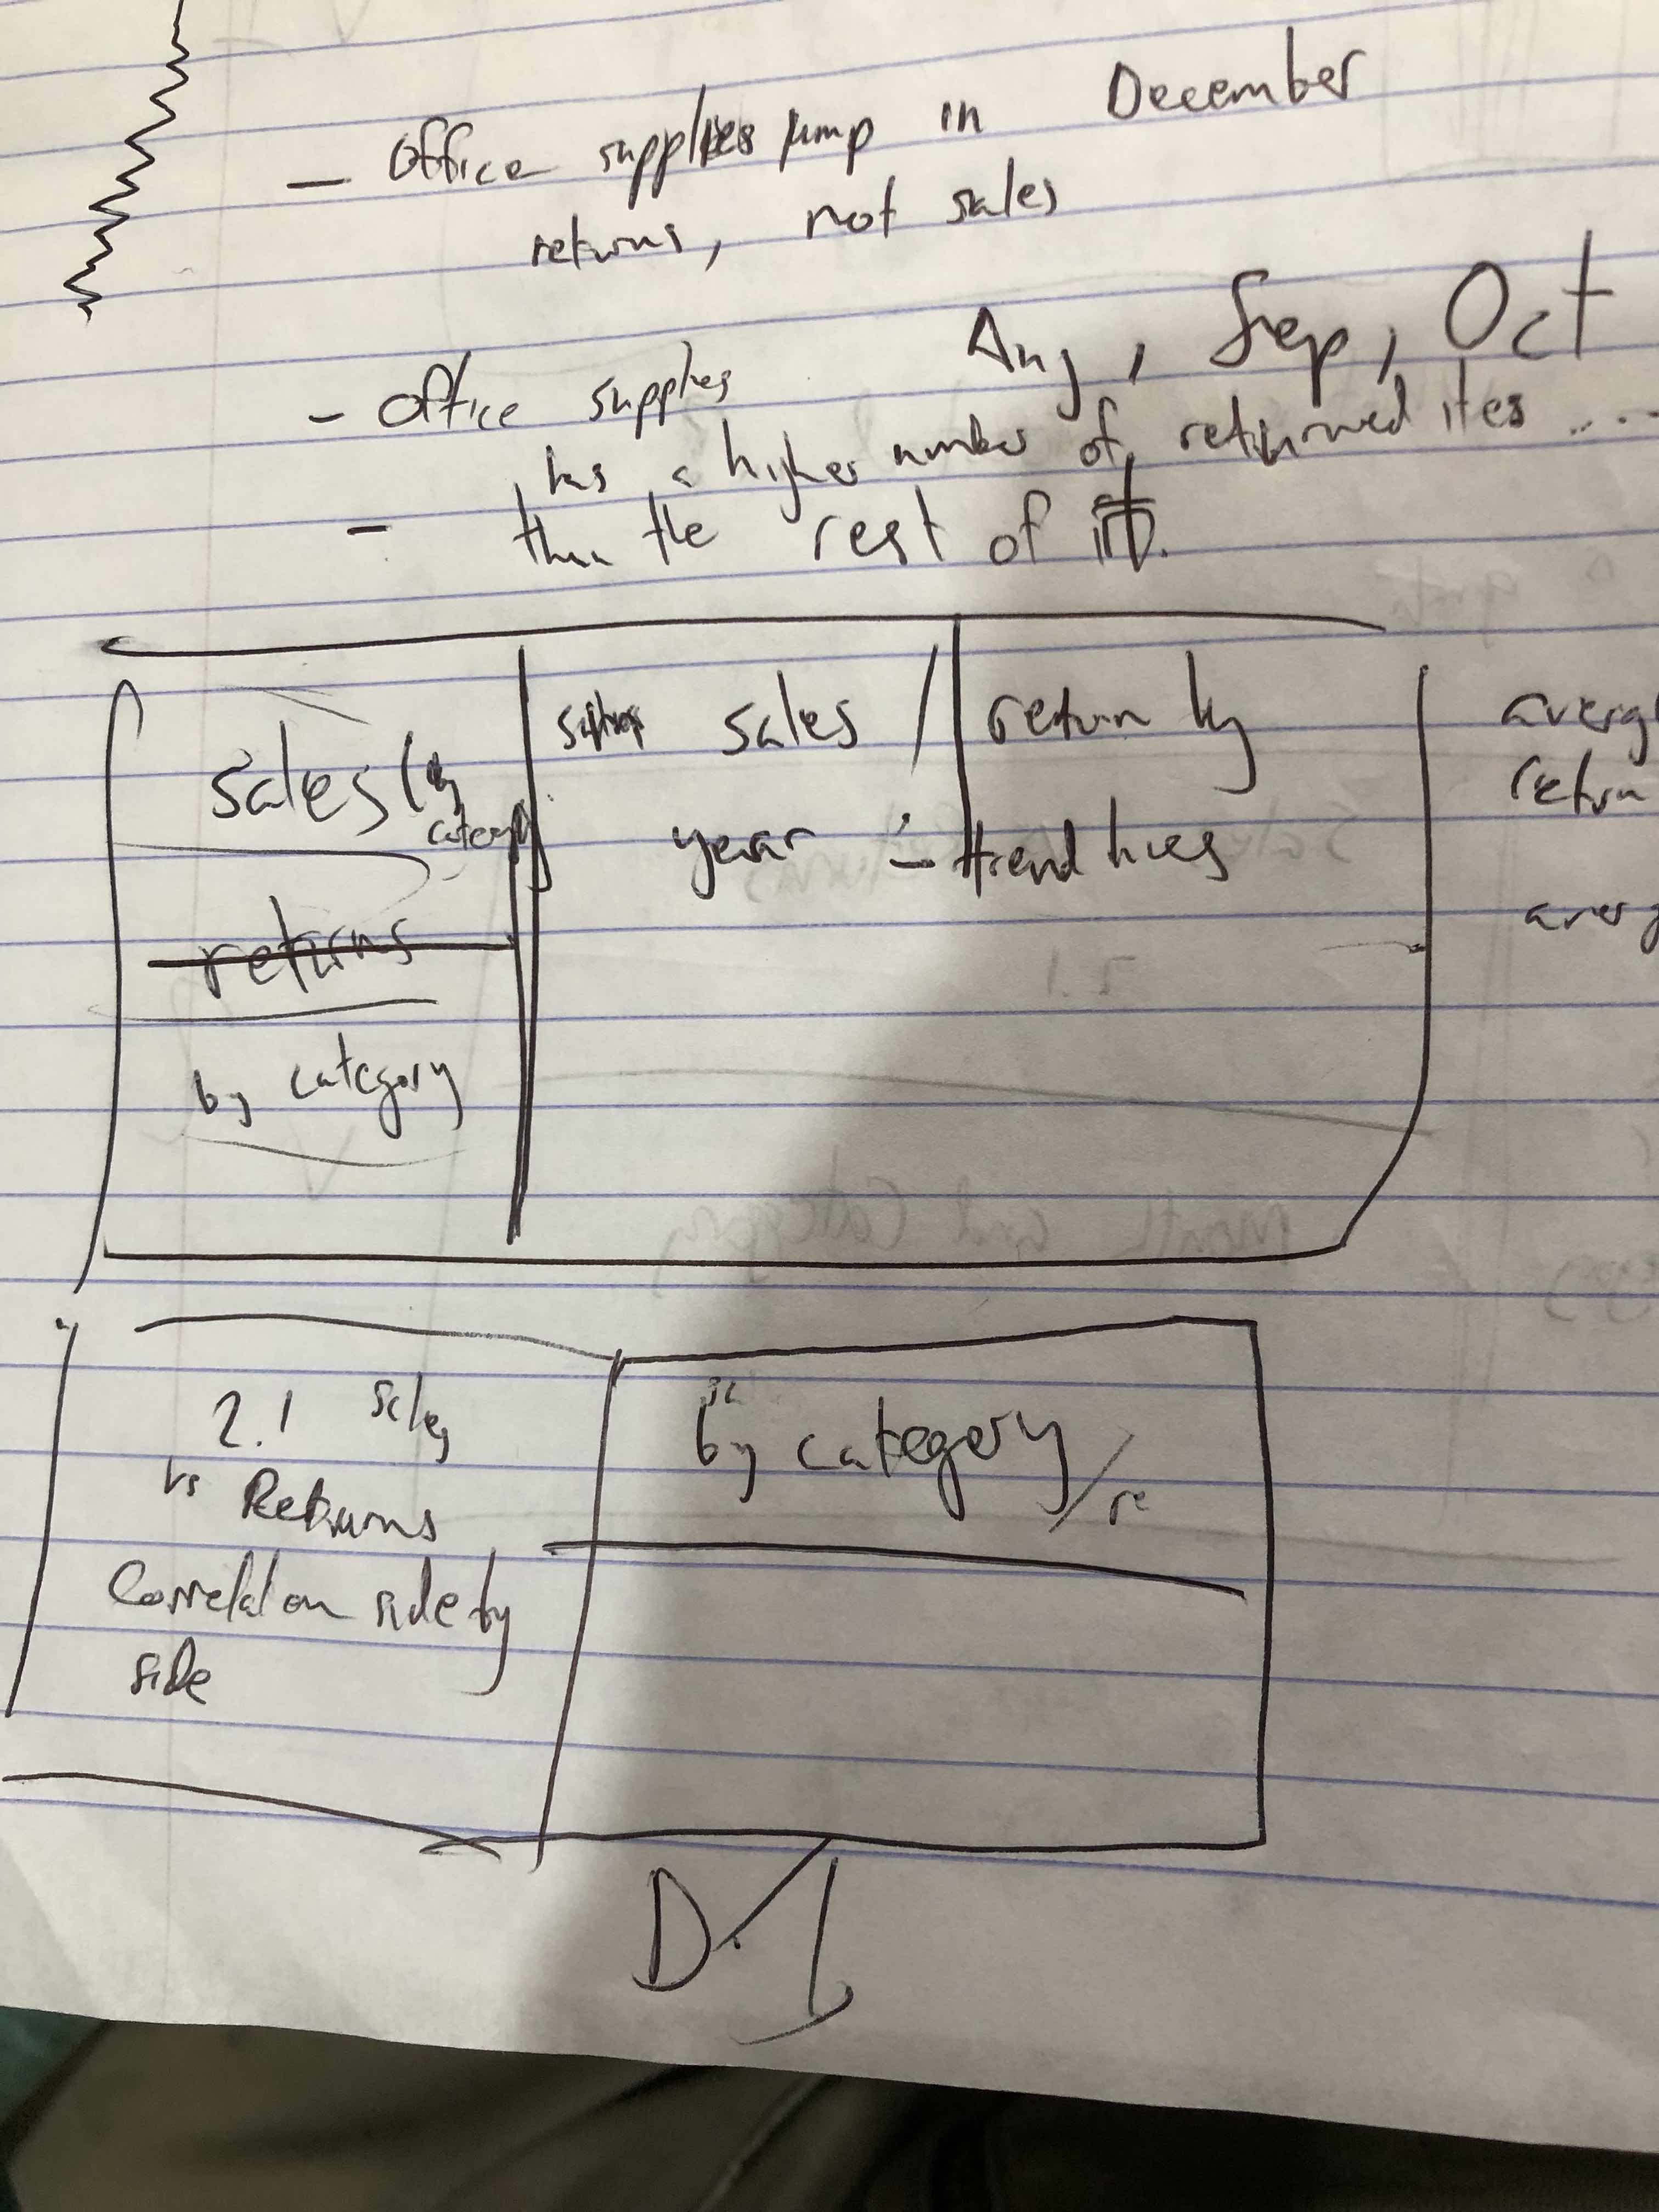 - Office supplies jump in December
returns, not sales
Aug, Sep, Oct
- Office supplies
has a higher number of returned ites ....
- than the rest of it.
sales by category
returns
by category
sales / return by
year - trend lines
averg
retur
averg
2.1 Sales
vs Returns
Correlation side by
side
by category / re